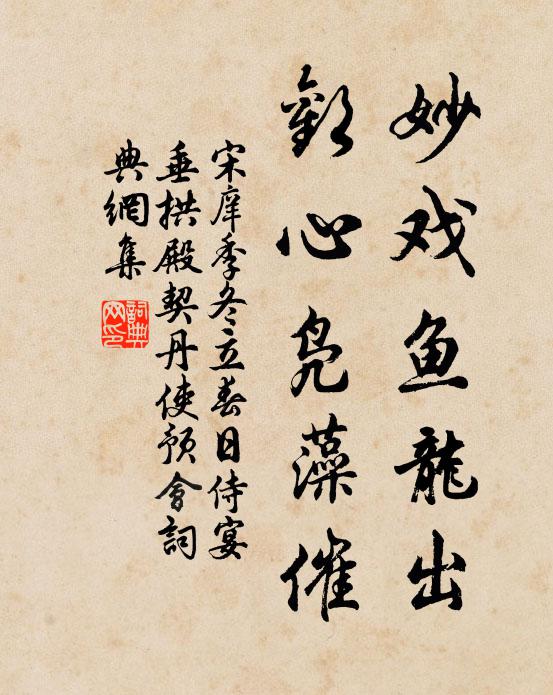 妙戏鱼龍出
歡心凫藻催
宋庠季冬立春日侍宴
垂拱殿契丹使预會詞
典網集
詞典
网印